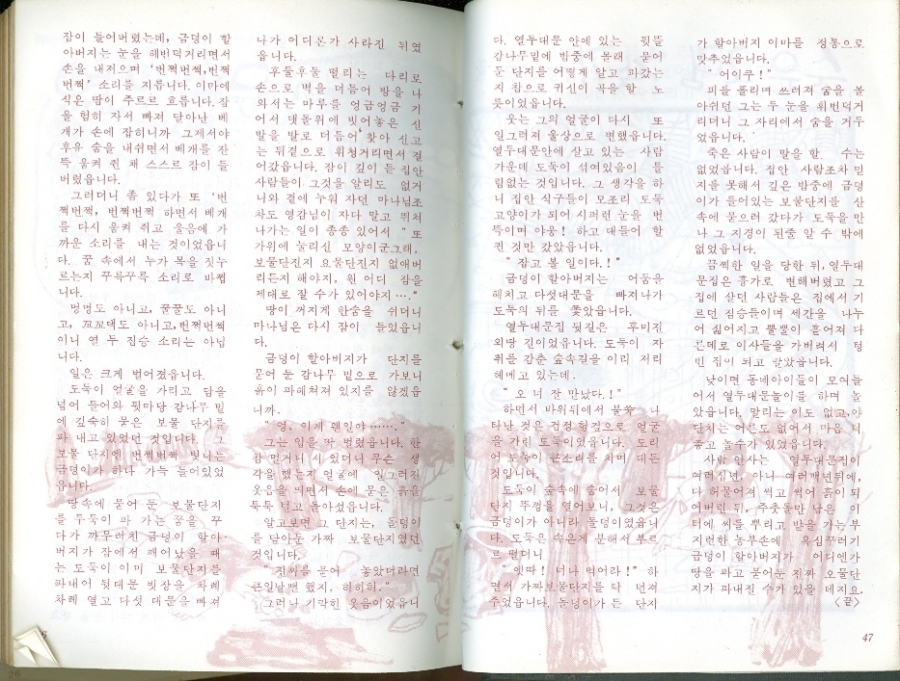 잠이 들어버렸는데, 금덩이 할
아버지는 눈을 해번덕거리면서
손을 내저으며 '번쩍번쩍, 번쩍
번쩍' 소리를 지릅니다. 이마에
식은 땀이 주르르 흐릅니다. 잠
을 험히 자서 빠져 달아난 베
개가 손에 잡히니까 그제서야
후유 숨을 내쉬면서 베개를 잔
뜩 움켜 쥔 채 스스르 잠이 들
버렸읍니다.
그러더니 좀 있다가 또 '번
쩍번쩍, 번쩍번쩍 하면서 베개
를 다시 움켜 쥐고 울음에 가
까운 소리를 내는 것이었읍니
다. 꿈 속에서 누가 목을 짓누
르는지 꾸룩꾸룩 소리로 바뀝
니다.
멍멍도 아니고, 꿀꿀도 아니
고, 꼬꼬댁도 아니고, 번쩍번쩍
이니 연 두 짐승 소리는 아닙
니다.
일은 크게 벌어졌읍니다.
도둑이 얼굴을 가리고 담을
넘어 들어와 뒷마당 감나무 밑
에 깊숙히 묻은 보물 단지를
파 내고 있었던 것입니다. 그
보물 단지엔 번쩍번쩍 빛나는
금덩이가 하나 가득 들어있었
읍니다.
땅속에 묻어 둔 보물단지
를 두둑이 파 가는 꿈을 꾸
다가 까무러친 금덩이 할아
버지가 잠에서 깨어났을 때
는 도둑이 이미 보물단지를
파내어 뒷대문 빗장을 차례
차례 열고 다섯 대문을 빠져
나가 어디론가 사라진 뒤였
읍니다.
후둘후둘 떨리는 다리로
손으로 벽을 더듬어 방을 나
와서는 마루를 엉금엉금 기
어서 댓돌위에 벗어놓은 신
발을 발로 더듬어 찾아 신고
는 뒤곁으로 휘청거리면서 걸
어갔읍니다. 잠이 깊이 든 집안
사람들이 그것을 알리도 없거
니와 곁에 누워 자던 마나님조
차도 영감님이 자다 말고 뛰쳐
나가는 일이 종종 있어서 "또
가위에 눌리신 모양이군그래.
보물단진지 요물단진지 없애버
리든지 해야지, 원 어디 잠을
제대로 잘 수가 있어야지…."
땅이 꺼지게 한숨을 쉬더니
마나님은 다시 잠이 들었읍니
다.
금덩이 할아버지가 단지를
묻어 둔 감나무 밑으로 가보니
흙이 파헤쳐져 있지를 않겠읍
니까.
"영, 이게 웬일야……."
그는 입을 딱 벌렸읍니다. 한
참 멍거니 서 있더니 무슨 생
각을 했는지 얼굴에 일그러진
웃음을 띠면서 손에 묻은 흙을
툭툭 털고 돌아섰읍니다.
알고보면 그 단지는, 돌덩이
를 담아둔 가짜 보물단지였던
것입니다.
"진짜를 묻어 놓았더라면
큰일날뻔 했지, 히히히."
그러나 기막힌 웃음이었읍니
다. 열두대문 안에 있는 뒷뜰
감나무밑에 밤중에 몰래 묻어
둔 단지를 어떻게 알고 파갔는
지 참으로 귀신이 곡을 할 노
릇이었읍니다.
웃는 그의 얼굴이 다시 또
일그러져 울상으로 변했읍니다.
열두대문안에 살고 있는 사람
가운데 도둑이 섞여있음이 틀
림없는 것입니다. 그 생각을 하
니 집안 식구들이 모조리 도둑
고양이가 되어 시퍼런 눈을 번
뜩이며 야웅! 하고 대들어 할
퀸 것만 같았읍니다.
"잡고 볼 일이다.!"
금덩이 할아버지는 어둠을
헤치고 다섯대문을 빠져나가
도둑의 뒤를 쫓았읍니다.
열두대문집 뒷길은 후미진
외땅 길이었읍니다. 도둑이 자
취를 감춘 숲속길을 이리 저리
헤메고 있는데.
"오 너 잔 만났다.!"
하면서 바위뒤에서 불쑥 나
타난 것은 검정 헝겊으로 얼굴
을 가린 도둑이었읍니다. 도리
어 도둑이 큰소리를 치며 대든
것입니다.
도둑이 숲속에 숨어서 보물
단지 뚜껑을 열어보니, 그것은
금덩이가 아니라 돌덩이였읍니
다. 도둑은 속은게 분해서 부르
르 떨더니
"엣따! 너나 먹어라!" 하
면서 가짜보물단지를 탁 던져
주었읍니다. 돌덩이가 든 단지
가 할아버지 이마를 정통으로
맞추었읍니다.
"어이쿠!"
피를 흘리며 쓰러져 숨을 몰
아쉬던 그는 두 눈을 휘번덕거
리더니 그 자리에서 숨을 거두
었읍니다.
죽은 사람이 말을 할 수는
없었읍니다. 집안 사람조차 믿
지를 못해서 깊은 밤중에 금덩
이가 들어있는 보물단지를 산
속에 묻으러 갔다가 도둑을 만
나 그 지경이 된줄 알 수 밖에
없었읍니다.
끔찍한 일을 당한 뒤, 열두대
문집은 흉가로 변해버렸고 그
집에 살던 사람들은 집에서 기
르던 짐승들이며 세간을 나누
어 짊어지고 뿔뿔이 흩어져 다
른데로 이사들을 가버려서 텅
빈 집이 되고 말았읍니다.
낮이면 동네아이들이 모여들
어서 열두대문놀이를 하며 놀
았읍니다. 말리는 이도 없고, 야
단치는 어른도 없어서 마음 놓
좋고 놀수가 있었읍니다.
사람 안사는 열두대문집이
여러십년, 아니 여러백년뒤에,
다 허물어져 썩고 썩어 흙이 되
어버린 뒤, 주춧돌만 남은 이
터에 씨를 뿌리고 밭을 가는 부
지런한 농부손에 욕심꾸러기
금덩이 할아버지가 어디엔가
땅을 파고 묻어둔 진짜 오물단
지가 파내질 수가 있을 테지요.
<끝>
47